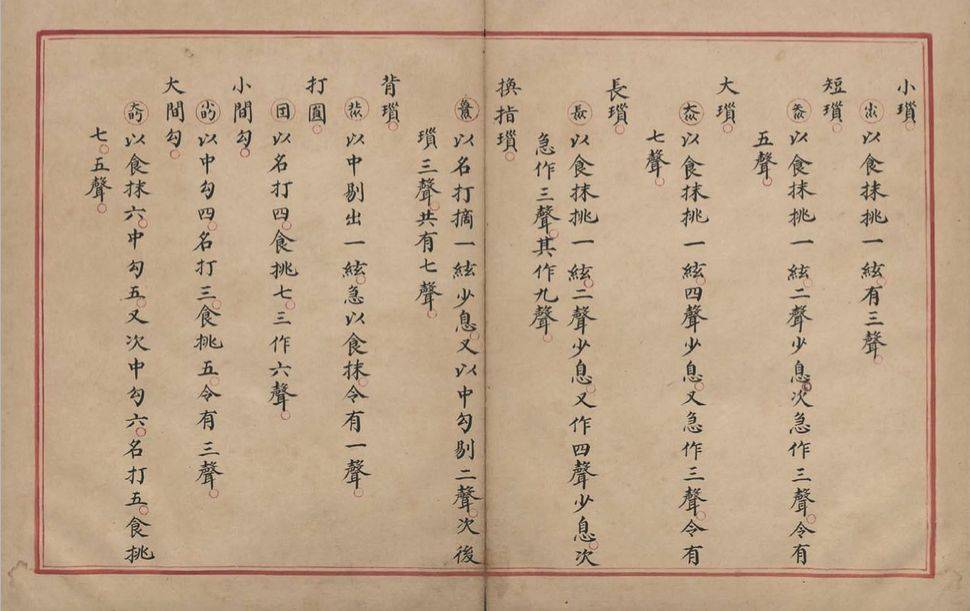 小瑣。
以食抹挑一絃。有三聲。
短瑣。
以食抹挑一絃。二聲少息。次急作三聲。令有
五聲。
大瑣。
以食抹挑一絃。四聲少息。又急作三聲。令有
七聲。
長瑣。
以食抹挑一絃。二聲少息。又作四聲少息。次
急作三聲。其作九聲。
換指瑣。
以名打摘一絃少息。又以中勾剔二聲。次後
瑣三聲。共有七聲。
背瑣。
以中剔出一絃。急以食抹。令有一聲。
打圓。
以名打四。食挑七。三作六聲。
小間勾。
以中勾四。名打三。食挑五。令有三聲。
大間勾。
以食抹六。中勾五。又次中勾六。名打五。食挑
七。五聲。